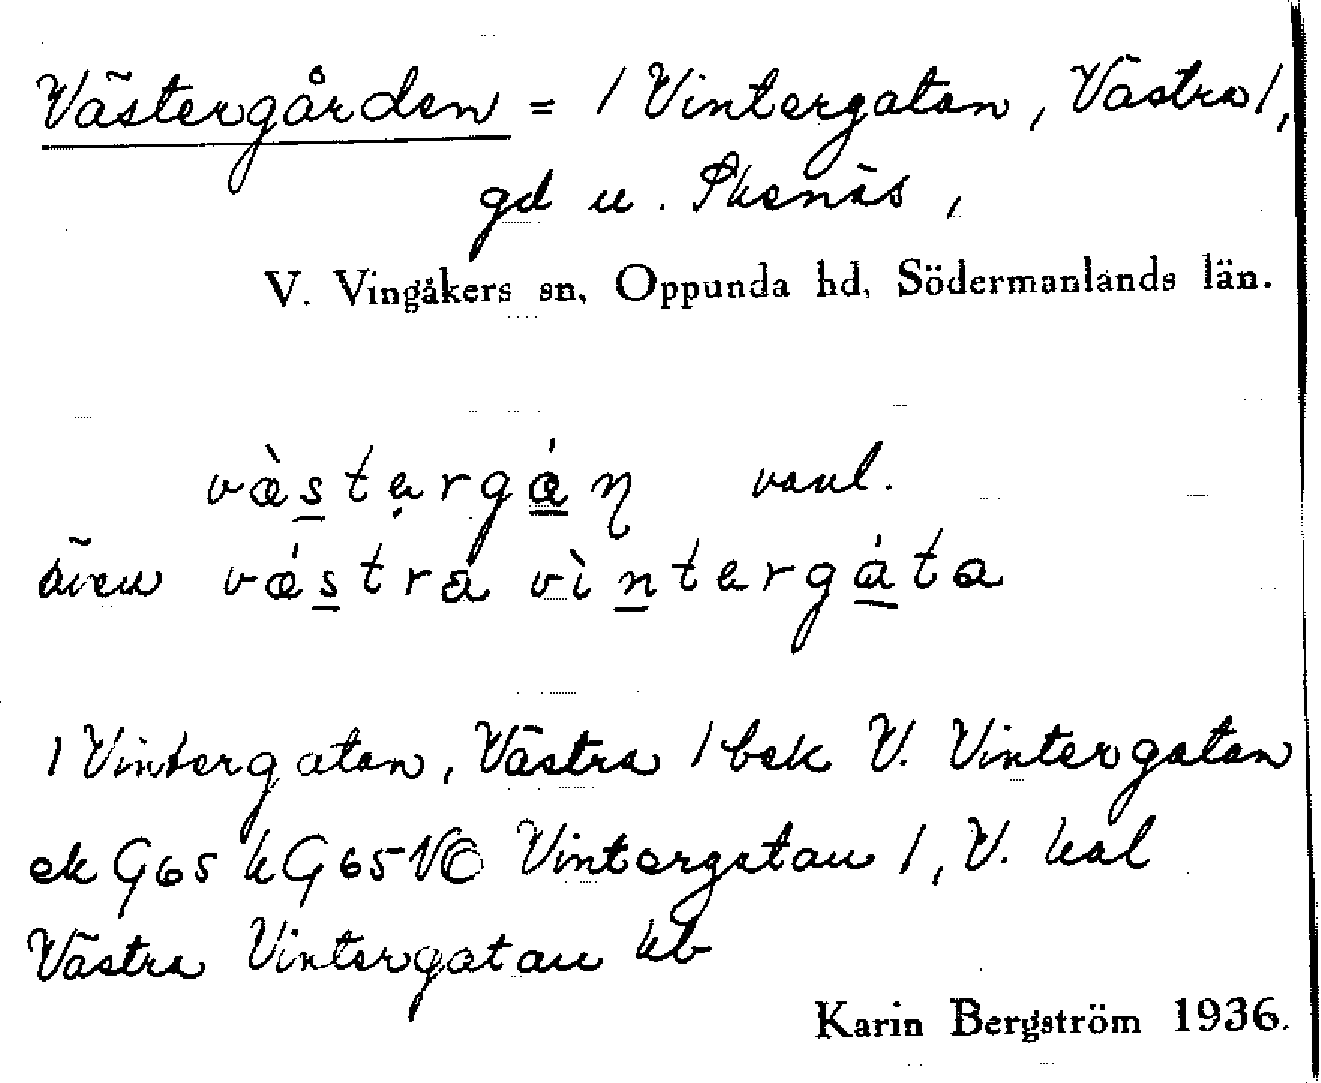 Västergården = / Vintergatan, Västra /,
gd u. Skenäs,
V. Vingåkers sn, Oppunda hd, Södermanlands län.
væ̀stərgɑ́η vanl.
även vǽstra vìntərgáta
/ Vintergatan, Västra / bek V. Vintergatan
ek G65 k G65 V© Vintergatan /, V. hal
Västra Vintergatan kb
Karin Bergström 1936.